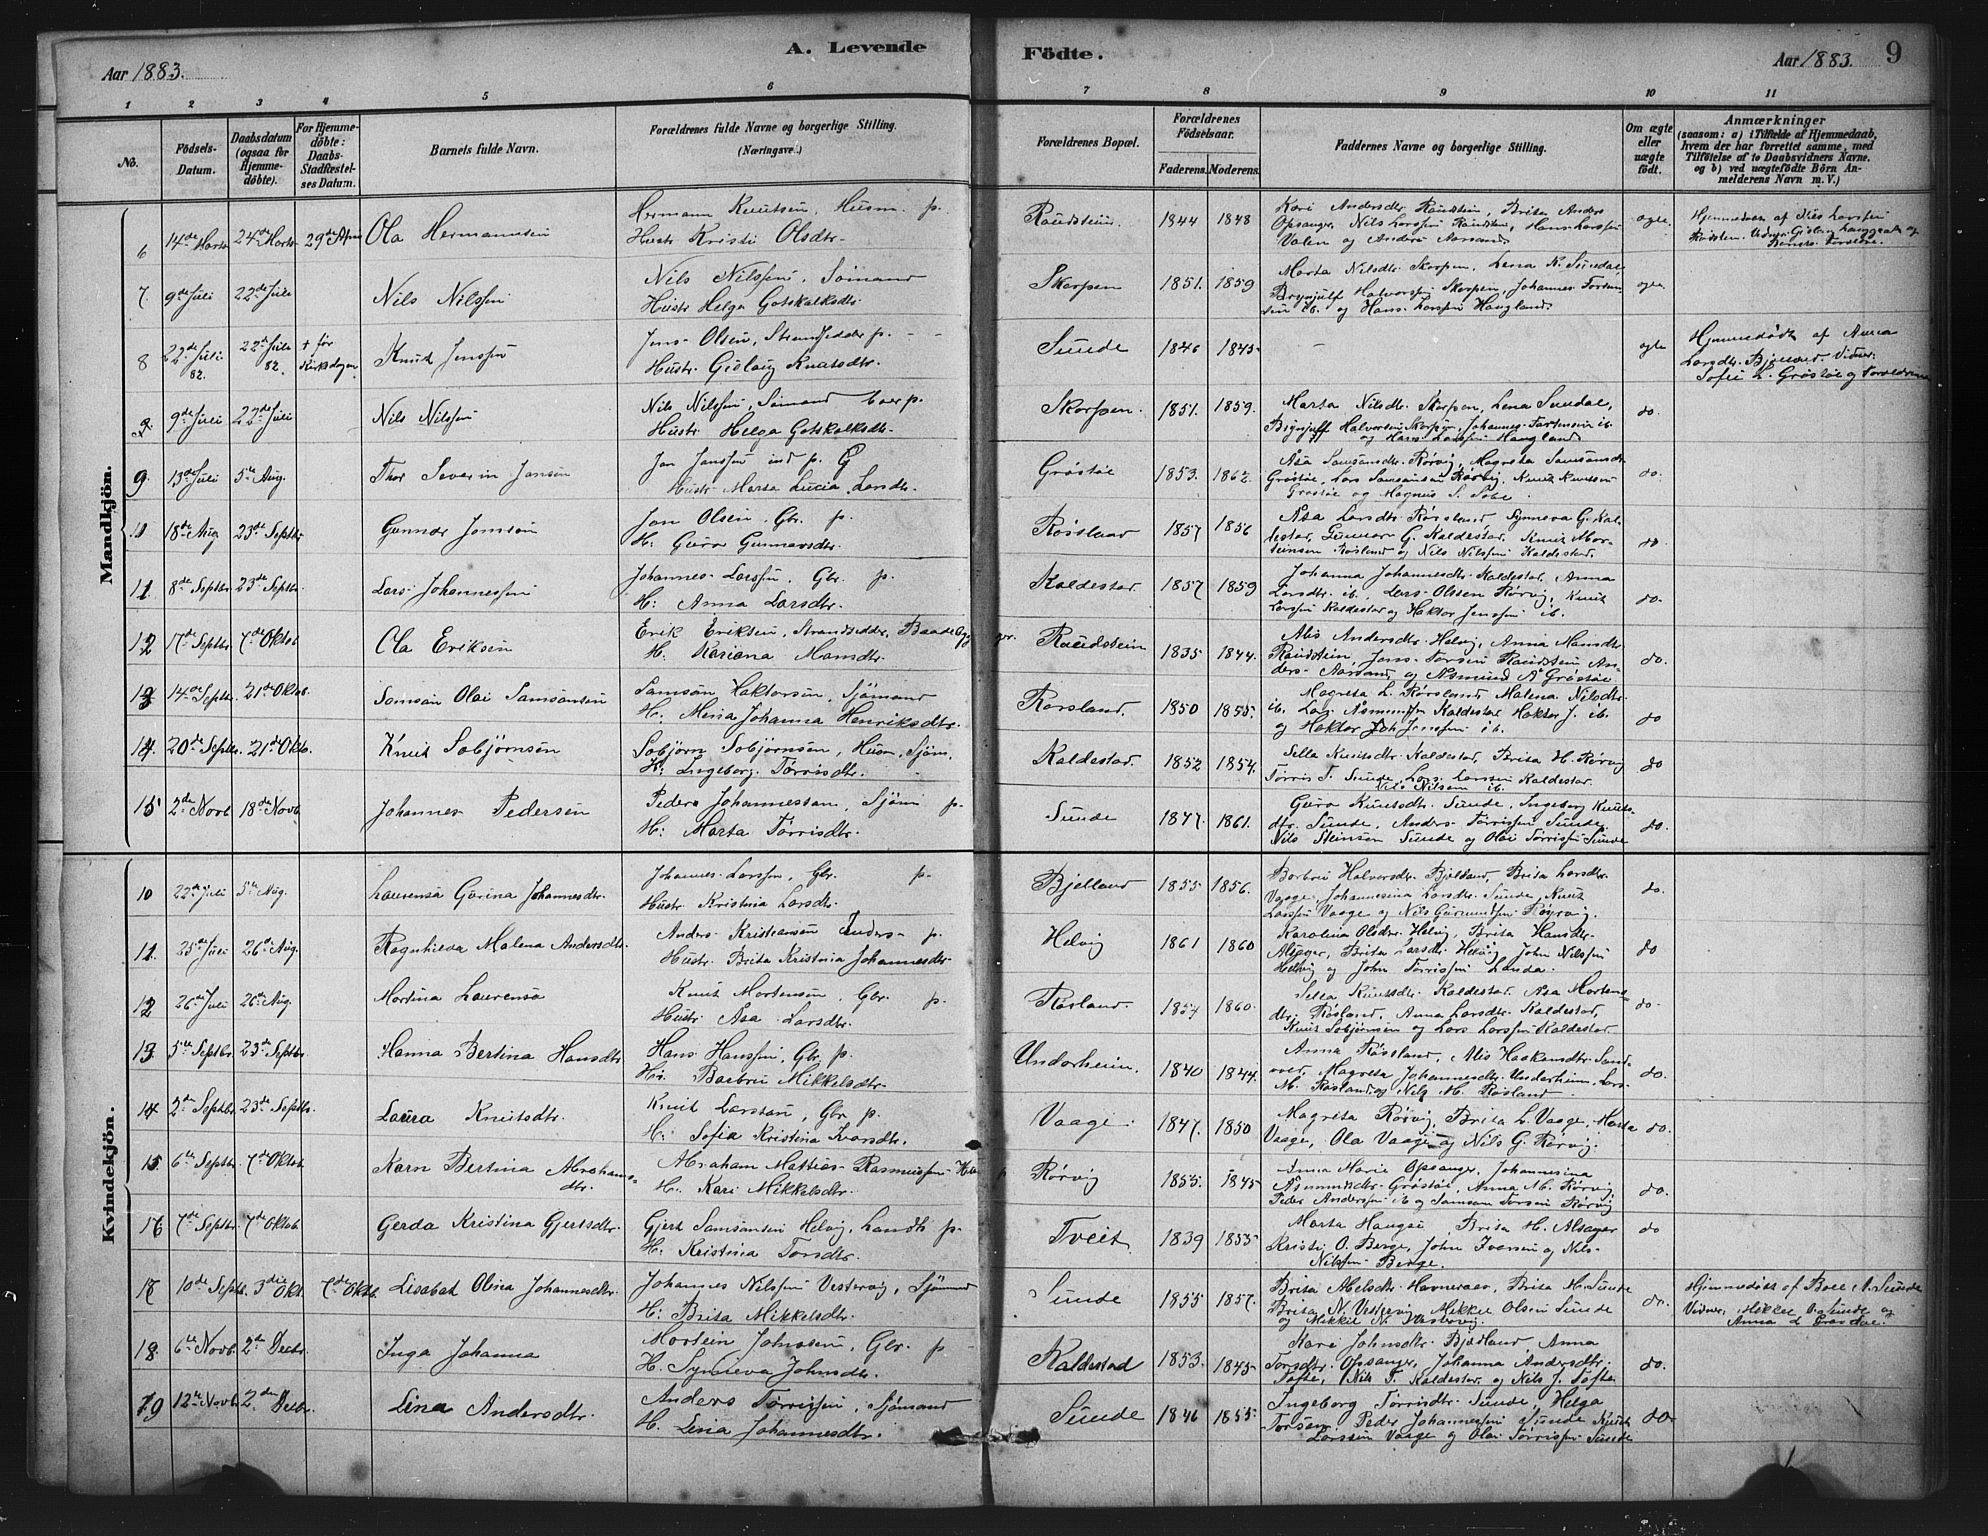 A. Levende Födte.
Aar 1883.
Aar 1883. 9
1 2 3 4 5 6 7 8 9 10 11
No.
Födsels-Datum.
Daabsdatum (ogsaa for Hjemme-döbte).
For Hjemme-döbte: Daabs-Stadfæstel-ses Datum.
Barnets fulde Navn.
Forældrenes fulde Navne og borgerlige Stilling. (Næringsvei.)
Forældrenes Bopæl.
Forældrenes Födselsaar.
Faderens. Moderens.
Faddernes Navne og borgerlige Stilling.
Om ægte eller uægte födt.
Anmærkninger
(saasom: a) i Tilfælde af Hjemmedaab, hvem der har forrettet samme, med Tilföielse af to Daabsvidners Navne. og b) ved uægtefödte Börn An-melderens Navn m. V.)
Mandkjön.
6 14de Marts 24de Marts 29de April Ola Hermannsen
Hermann Knutsen, Husm. p.
Hustr Kristi Olsdtr.
Raudstein 1844 1848
Kari Andersdtr Raudstein, Brita Anders
Opsanger, Nils Larssen Raudstein, Hans Larssen
Valen og Anders
7. 9de Juli 22de Juli Nils Nilssen
Nils Nilssen, Sømand
Hustr Helga Gotskalksdtr
Skorpen 1851. 1859
Marta Nilsdtr Skorpen, Lena K. Sundal,
Brynjulf Halvorsen Skorpen, Johannes
ib. og Hans Larssen Haugland
8 22de Juli 82. 22de Juli 82. + før Kirkedagen Knud Jenssen
Jens Olsen, Strandsidder p.
Hustr Gislaug Knutsdtr.
Sunde 1846 1845 – ægte
Hjemmedøbt af Anna
Larsdtr. Bjelland. Vidner:
Sofie L. Grøstøe og Forældrene
9 9de Juli 22de Juli Nils Nilssen
Nils Nilssen, Sømand
Hustr Helga Gotskalksdtr
Skorpen. 1851. 1859.
Marta Nilsdtr. Skorpen, Lena Sundal,
Brynjulf Halvorsen Skorpen, Johannes Torstensen ib.
og Hans Larssen Haugland
do.
9. 13de Juli 5te Aug. Thor Severin Jansen
Jan Janssen ind p. G
Hustr Marta Lucia Larsdtr.
Grøstøe 1853. 1862.
Asa Samsonsdtr. Rørvig, Magreta Samsonsdtr
Grøstøe, Lars Samsonsen Rørvig, Knut Knutsen
Grøstøe og Magnus S.
do.
10 18de Aug 23de Septbr Gunnar Jonsson
Jon Olsen, Gbr. p.
H: Guro Gunnarsdtr.
Røsland 1857 1856
Asa Larsdtr. Røsland, Synneva G. Kal-
destad, Gunnar G. Kaldestad, Knut Mor-
tensen Røsland og Nils Nilssen Kaldestad.
do.
11 8de Septbr. 23de Septbr. Lars Johannessen
Johannes Larssen, Gbr. p.
H: Anna Larsdtr.
Kaldestad 1857 1859
Johanna Johannesdtr. Kaldestad, Anna
Larsdtr. ib., Lars Olssen Rørvig, Knut
Larssen Kaldestad og Haktor Jenssen ib.
do.
12 17de Septbr 7de Oktob Ola Eriksen
Erik Eriksen, Strandsidder, Baadebygger.
H: Kariana Monsdtr.
Raudstein 1835 1844.
Alis Andersdtr. Helvig, Anna Monsdtr
Raudstein, Jens Torsen Raudstein An-
ders og Asmund A. Grøstøe
do.
13 14de Septbr. 21de Oktob. Samson Olai Samsonsen
Samson Haktorsen, Sjømand
H. Mina Johanna Henriksdtr.
Rørsland. 1850 1855.
Magreta L. Rørsland, Malena Nilsdtr.
ib. Lars Asmundsen Kaldestad Haktor J. ib.
og Haktor Jenssen ib.
do
14. 20de Septbr 21de Oktb. Knut Sobjørnsen
Sobjørn Sobjørnsen, Husm. Sjøm.
H: Ingeborg Tørrisdtr.
Kaldestad 1852 1854.
Sella Knutsdtr. Kaldestad, Brita H. Rørvig
Tørris T. Sunde, Lars Larssen Kaldestad
Nils Nilsen ib.
do
15 2de Novb 18de Novb. Johannes Pedersen
Peder Johannessen, Sjøm p.
H: Marta Tørrisdtr.
Sunde 1847. 1861.
Guro Knutsdtr. Sunde, Ingeborg Knuts
dtr. Sunde, Anders Tørrissen Sunde,
Nils Steinsen Sunde og Olai Tørrissen Sunde
do.
Kvindekjön.
10 22de Juli 5te Aug. Laurensa Gurina Johannesdtr.
Johannes Larssen, Gbr. p.
Hustr Kristina Larsdtr.
Bjelland 1855 1856.
Barbru Halvorsdtr. Bjelland, Brita Larsdtr.
Vaage, Johannesina Larsdtr. Sunde, Knut
Larssen Vaage og Nils Gurmundsen Rørvig.
do.
11. 25de Juli 26de Aug. Ragnhilda Malena Andersdtr.
Anders Kristiansen p.
Hustr. Brita Kristina Johannesdtr
Helvig 1861 1860
Karolina Olsdtr. Helvig, Brita Hansdtr
Alsager, Brita Larsdtr. Helvig John Nilssen
Helvig og John Tørrissen Landa.
do
12 26de Juli 26de Aug. Martina Laurensa
Knut Mortensen, Gbr. p.
Hustr Asa Larsdtr.
Røsland 1854 1860.
Sella Knutsdtr. Kaldestad, Asa Mortens-
dtr. Røsland, Anna Larsdtr. Kaldestad,
Knut Sobjørnsen og Lars Larssen Kaldestad.
do.
13 5te Septbr. 23de Septbr. Hanna Bertina Hansdtr
Hans Hanssen, Gbr. p.
H: Barbru Mikkelsdtr.
Undarheim. 1840 1844.
Anna Røssland, Alis Haakonsdtr.
Magreta Johannesdtr. Undarheim, Lars
M. Røsland og Nils M. Røsland.
do.
14 2de Septbr. 23de Septbr. Laura Knutsdtr.
Knut Larssen, Gbr p.
H: Sofia Kristina Ivarsdtr.
Vaage. 1847. 1850
Magreta Rørvig, Brita L. Vaage, Marta
Vaage, Ola Vaage og Nils G. Rørvig.
do.
15. 6te Septbr 7de Oktob Karn Bertina Abrahams-
dtr.
Abraham Mattias Rasmussen
H. Kari Mikkelsdtr.
Rørvig 1855. 1845
Anna Marie Opsanger, Johannesina
Asmundsdtr. Grøstøe, Anna M. Rørvig
Peder Andersen ib og Samson Torsen Rørvig
do.
16 7de Septbr. 7de Oktob Gerda Kristina Gjertsdtr.
Gjert Samsonsen Helvig, Landh. p.
H. Kristina Torsdtr.
Tveit. 1839 1855
Marta Haugse, Brita H. Alsager
Kristi O. Berge, John Iversen og Nils
Nilssen Berge.
do
17 10de Septb. 3die Okt. 7de Oktb. Lisabet Olina Johannesdtr.
Johannes Nilssen Vestervig, Sjømand
H: Brita Mikkelsdtr.
Sunde 1855 1857.
Brita Abelsdtr. Havneraas, Brita M. Sunde
Brita N. Vestervig, Mikkel Olsen Sunde
og Mikkel N. Vestervig.
do.
Hjemmedøbt af Boel A. Sunde
Vidner, Mikkel O. Sunde og
Anna L
18. 6te Novb. 2de Decbr. Inga Johanna
Mortein Johnssen, Gbr. p
H. Synneva Johnsdtr.
Kaldestad 1853. 1845
Kari Johnsdtr. Bjelland, Anna
Torsdtr. Opsanger, Johanna Andersdtr.
Tofte, Nils T. Kaldestad og Nils J. Tofte
do.
19 12te Novb. 2de Decbr. Lina Andersdtr.
Anders Tørrissen, Sjømand
H. Lina Johannesdtr.
Sunde 1846 1855.
Ingeborg Tørrisdtr. Sunde, Helga
Torsen, Peder Johannessen Sunde Knut
Larssen Vaage og Olai Tørrissen Sunde
do.